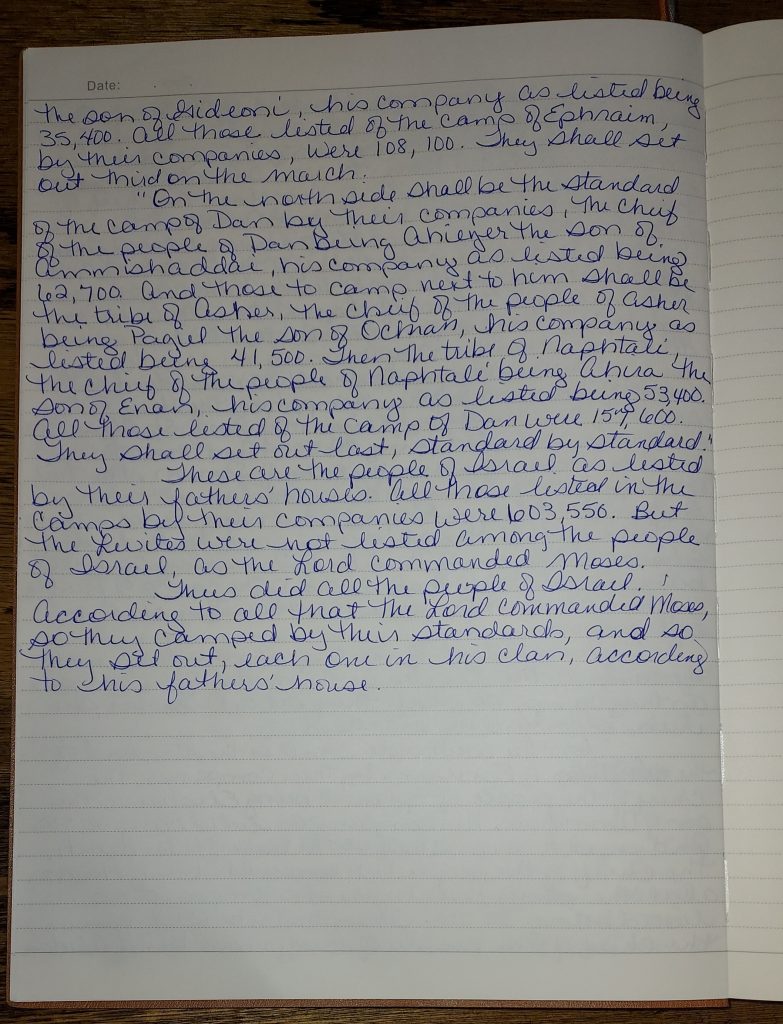 Date:
the son of Gideoni, his company as listed being
35,400. All those listed of the camp of Ephraim,
by their companies, were 108,100. They shall set
out third on the march.
"On the north side shall be the standard
of the camp of Dan by their companies, the chief
of the people of Dan being Ahiezer the son of
Ammishaddai, his company as listed being
62,700. And those to camp next to him shall be
the tribe of Asher, the chief of the people of Asher
being Pagiel the son of Ochran, his company as
listed being 41,500. Then the tribe of Naphtali,
the chief of the people of Naphtali being Ahira the
son of Enan, his company as listed being 53,400.
All those listed of the camp of Dan were 157,600.
They shall set out last, standard by standard."
These are the people of Israel as listed
by their fathers' houses. All those listed in the
camps by their companies were 603,550. But
the Levites were not listed among the people
of Israel, as the Lord commanded Moses.
Thus did all the people of Israel.
According to all that the Lord commanded Moses,
so they camped by their standards, and so
they set out, each one in his clan, according
to his fathers' house.